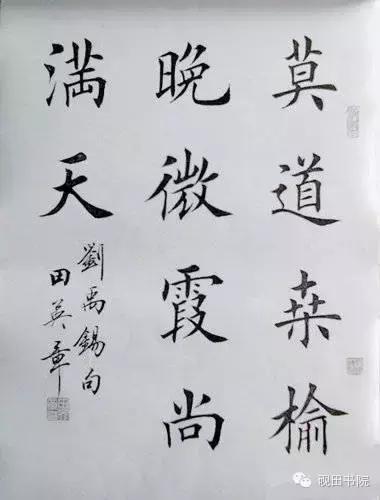 莫道桒榆
晚微霞尚
満天
劉禹錫句
田英章
砚田书院